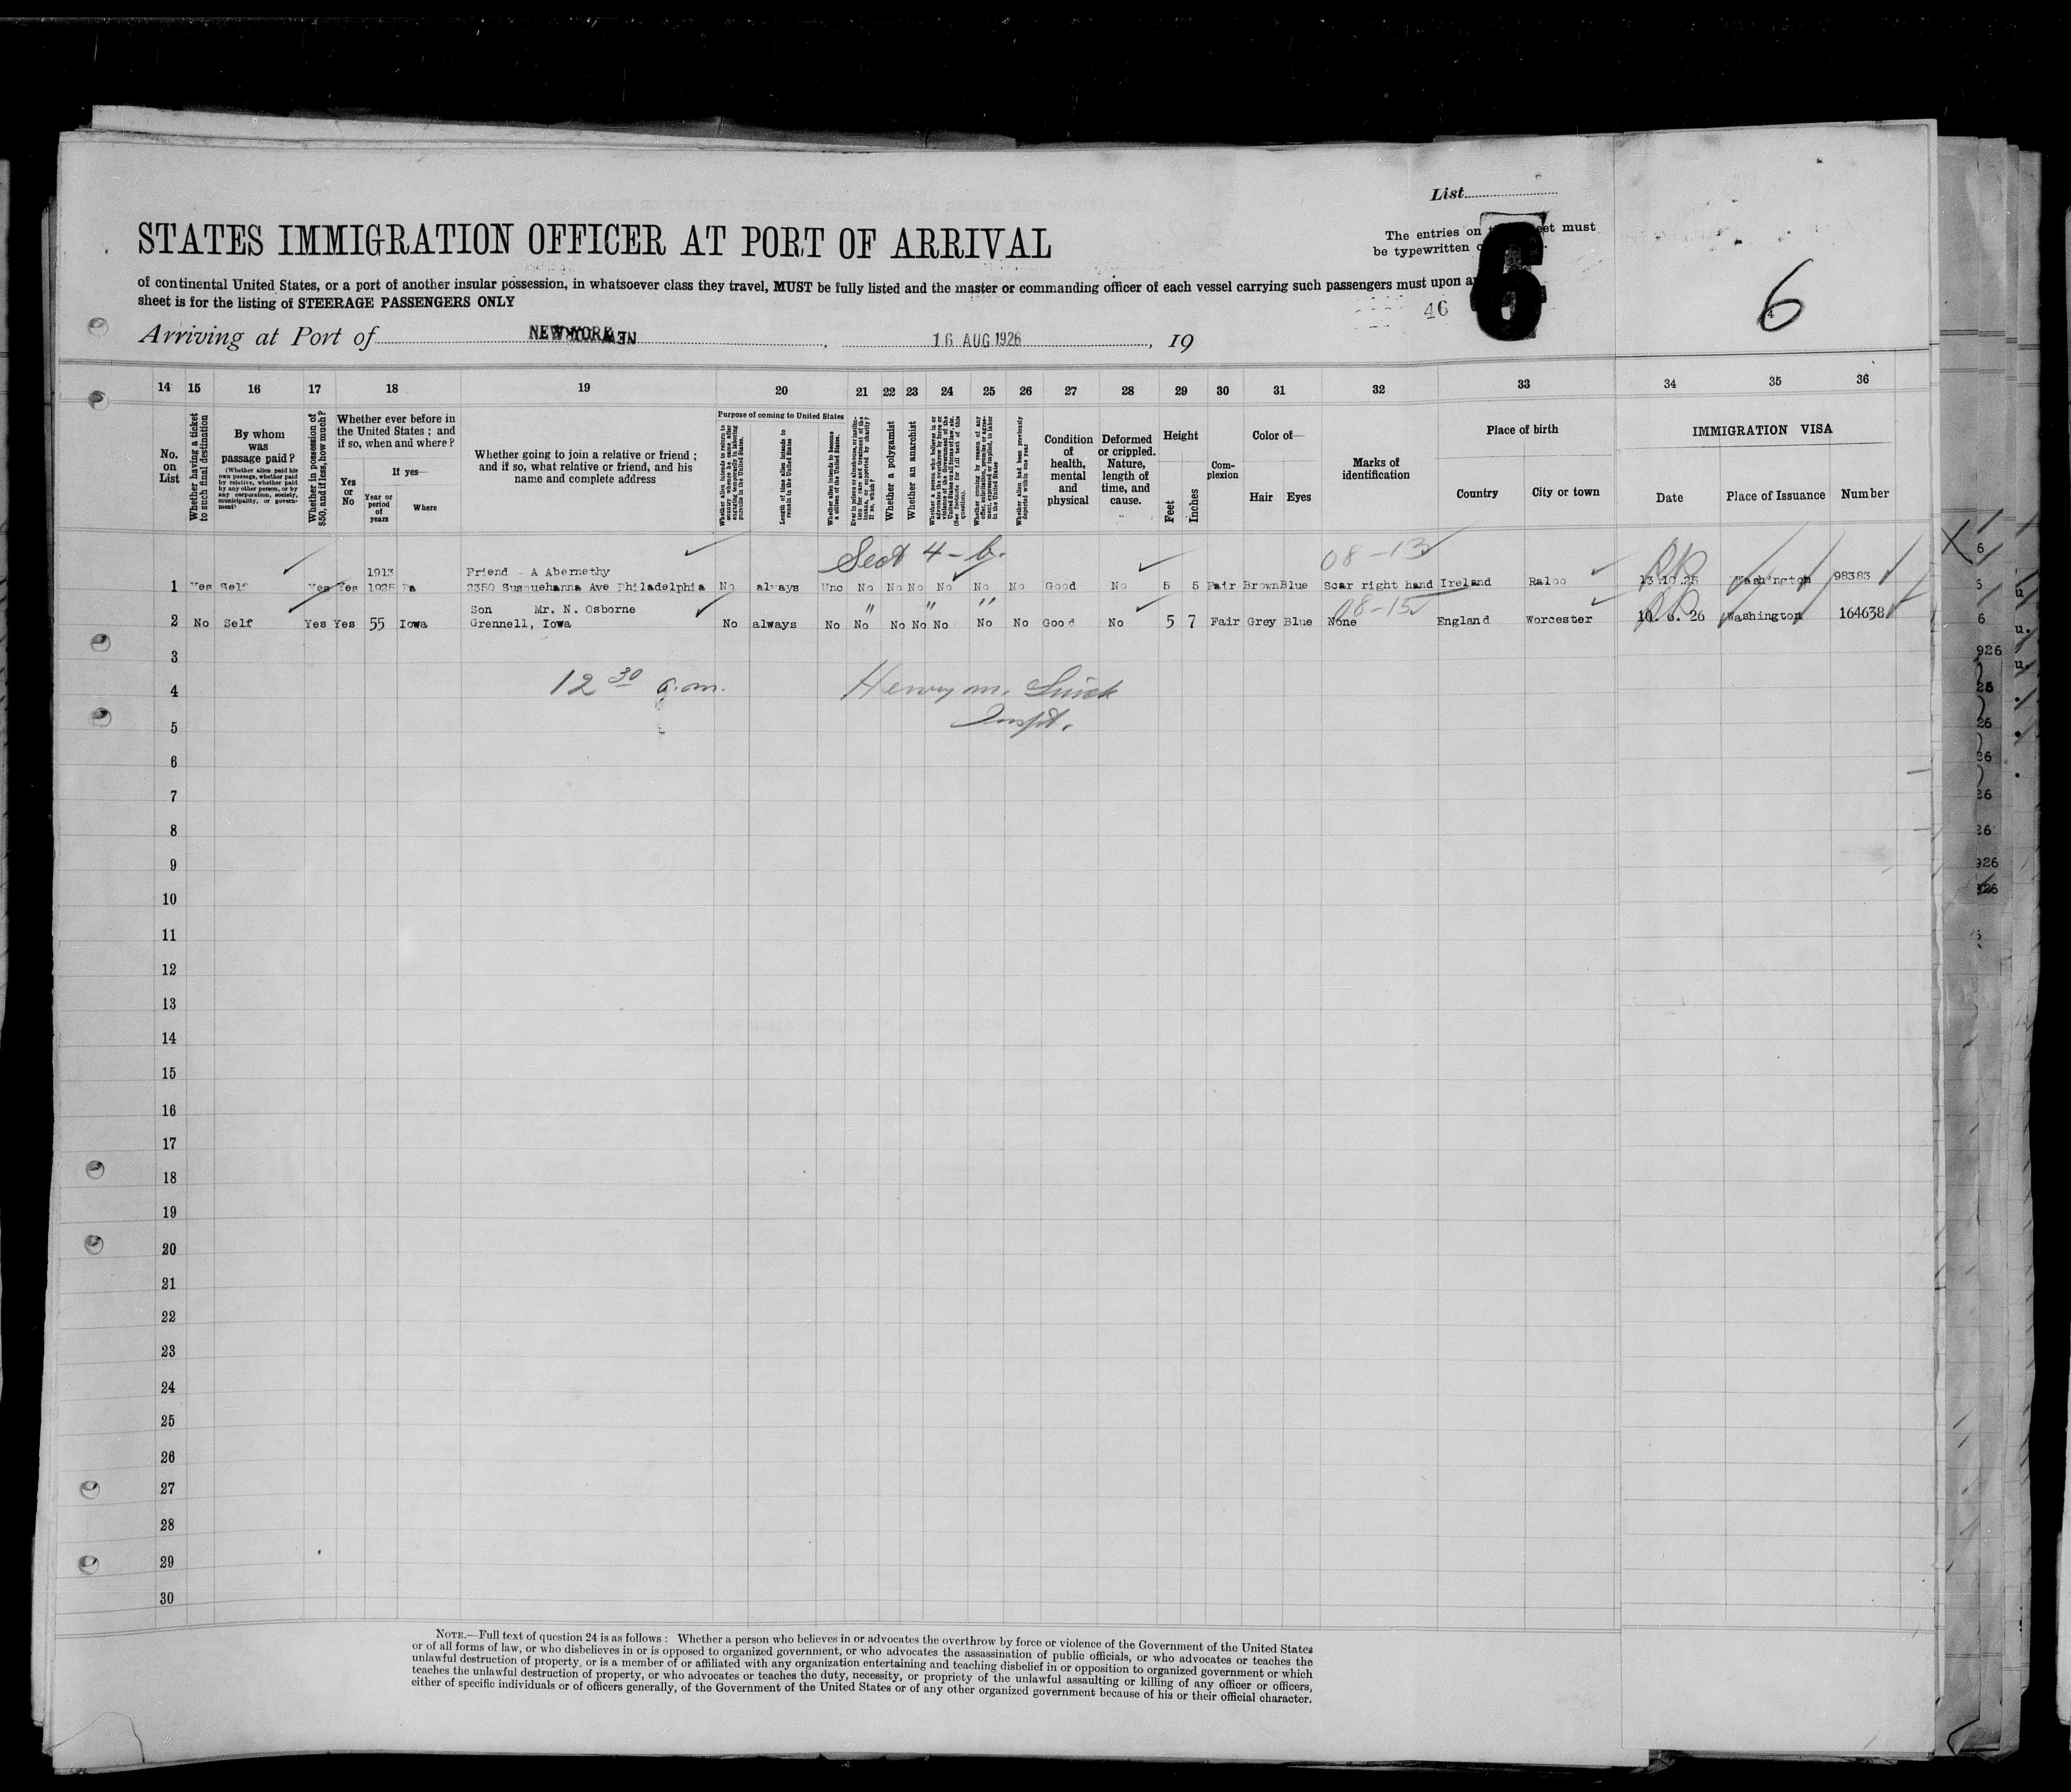 List
STATES IMMIGRATION OFFICER AT PORT OF ARRIVAL
The entries on sheet must
be typewritten
6
of continental United States, or a port of another insular possession, in whatsoever class they travel, MUST be fully listed and the master or commanding officer of each vessel carrying such passengers must upon
sheet is for the listing of STEERAGE PASSENGERS ONLY
46
6
Arriving at Port of NEW YORK, 16 AUG 1926, 19
14 15 16 17 18 19 20 21 22 23 24 25 26 27 28 29 30 31 32 33 34 35 36
No. on List
Whether having a ticket to such final destination
By whom was passage paid?
(Whether alien paid his own passage, whether paid by relative, whether paid by any other person, or by any corporation, society, municipality, or government)
Whether in possession of $50, and if less, how much?
Whether ever before in the United States; and if so, when and where?
Yes or No
If yes—
Year or period of years
Where
Whether going to join a relative or friend; and if so, what relative or friend, and his name and complete address
Purpose of coming to United States
Whether alien intends to return to country whence he came after engaging temporarily in laboring pursuits in the United States.
Length of time alien intends to remain in the United States
Whether alien intends to become a citizen of the United States.
Ever in prison or almshouse, or institution for care and treatment of the insane, or supported by charity? If so, which?
Whether a polygamist
Whether an anarchist
Whether a person who believes in or advocates the overthrow by force or violence of the Government of the United States or all forms of law, etc. (See footnote for full text of this question).
Whether coming by reason of any offer, solicitation, promise or agreement, expressed or implied, to labor in the United States
Whether alien had been previously deported within one year
Condition of health, mental and physical
Deformed or crippled. Nature, length of time, and cause.
Height
Feet
Inches
Complexion
Color of—
Hair Eyes
Marks of identification
Place of birth
Country
City or town
IMMIGRATION VISA
Date
Place of Issuance
Number
Sect 4-b.
08-13
1913
Friend - A Abernethy
1 Yes Self Yes Yes 1925 Pa 2350 Susquehanna Ave Philadelphia No always Unc No No No No No No Good No 5 5 Fair Brown Blue Scar right hand Ireland Raloo 13.10.25 Washington 98383
Son Mr. N. Osborne
" " "
08-15
2 No Self Yes Yes 55 Iowa Grennell, Iowa No always No No No No No No No Good No 5 7 Fair Grey Blue None England Worcester 10. 6. 26 Washington 164638
3
12 30 a.m.
Henry M.
4
Inspt.
5
6
7
8
9
10
11
12
13
14
15
16
17
18
19
20
21
22
23
24
25
26
27
28
29
30
NOTE.—Full text of question 24 is as follows: Whether a person who believes in or advocates the overthrow by force or violence of the Government of the United States
or of all forms of law, or who disbelieves in or is opposed to organized government, or who advocates the assassination of public officials, or who advocates or teaches the
unlawful destruction of property, or is a member of or affiliated with any organization entertaining and teaching disbelief in or opposition to organized government or which
teaches the unlawful destruction of property, or who advocates or teaches the duty, necessity, or propriety of the unlawful assaulting or killing of any officer or officers,
either of specific individuals or of officers generally, of the Government of the United States or of any other organized government because of his or their official character.